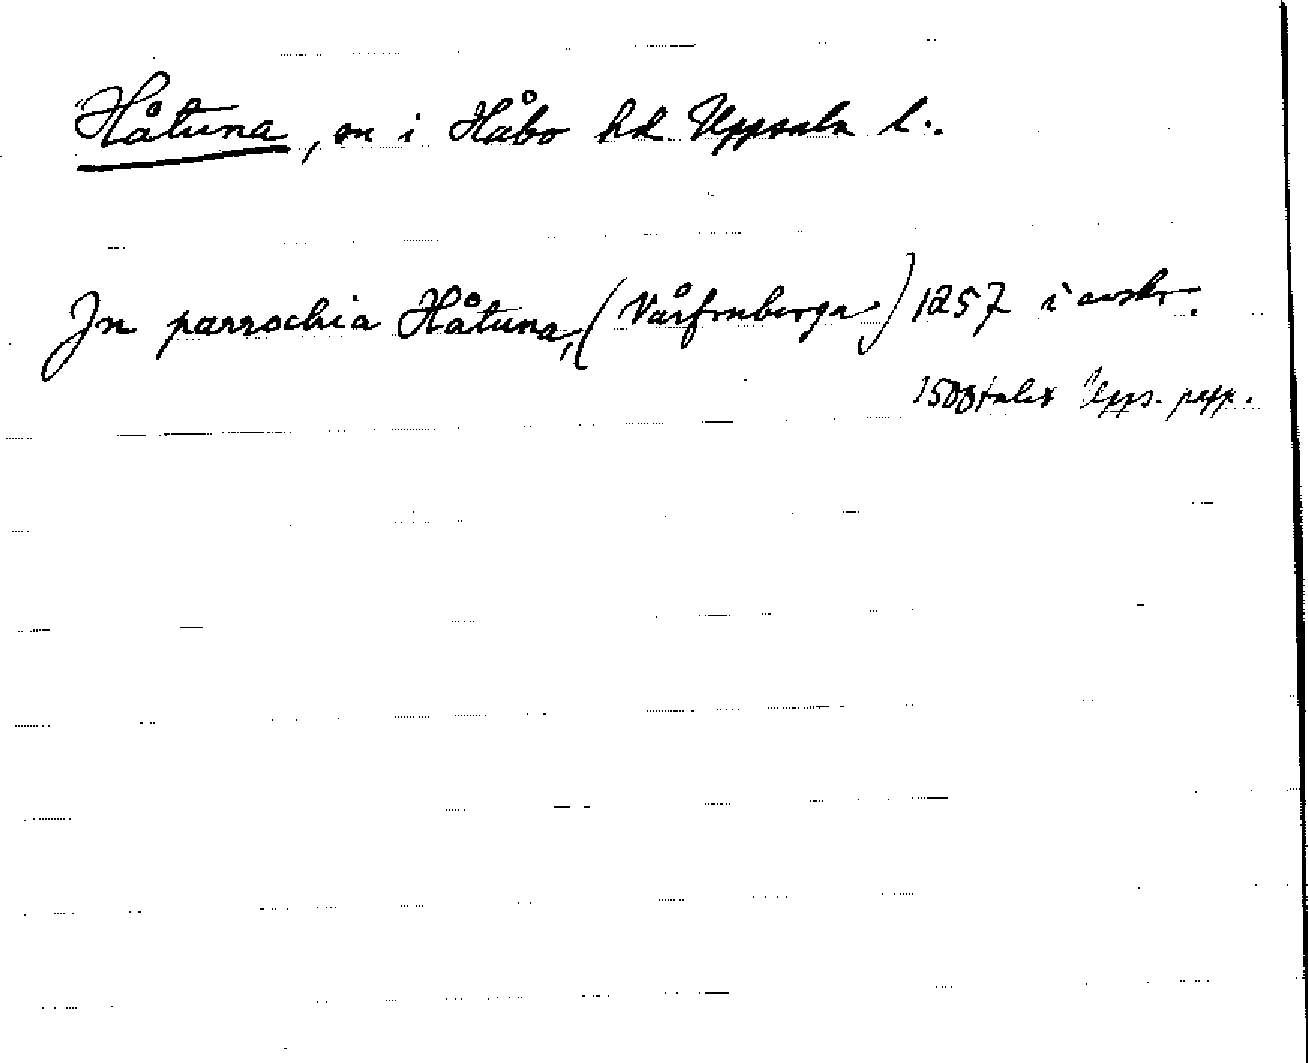 Håtuna, sn i Håbo hd Uppsala l.
In parrochia Håtuna, (Vårfruberga) 1257 i avskr.
1500talet Upps. papp.